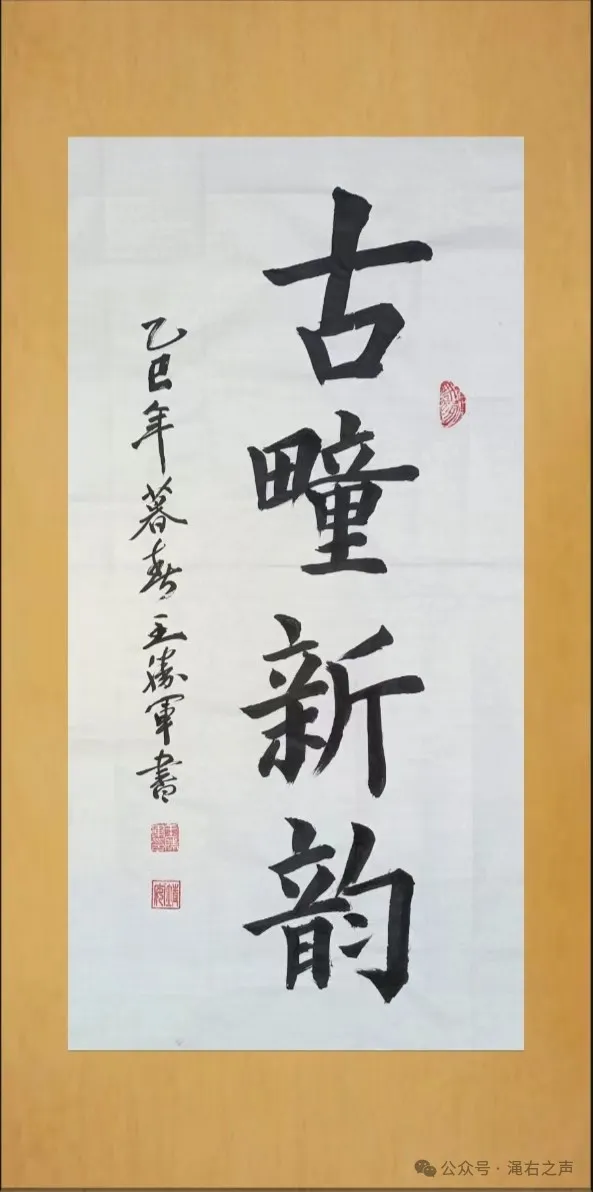 古疃新韵
乙巳年暮春王胜军書
公众号·渑右之声